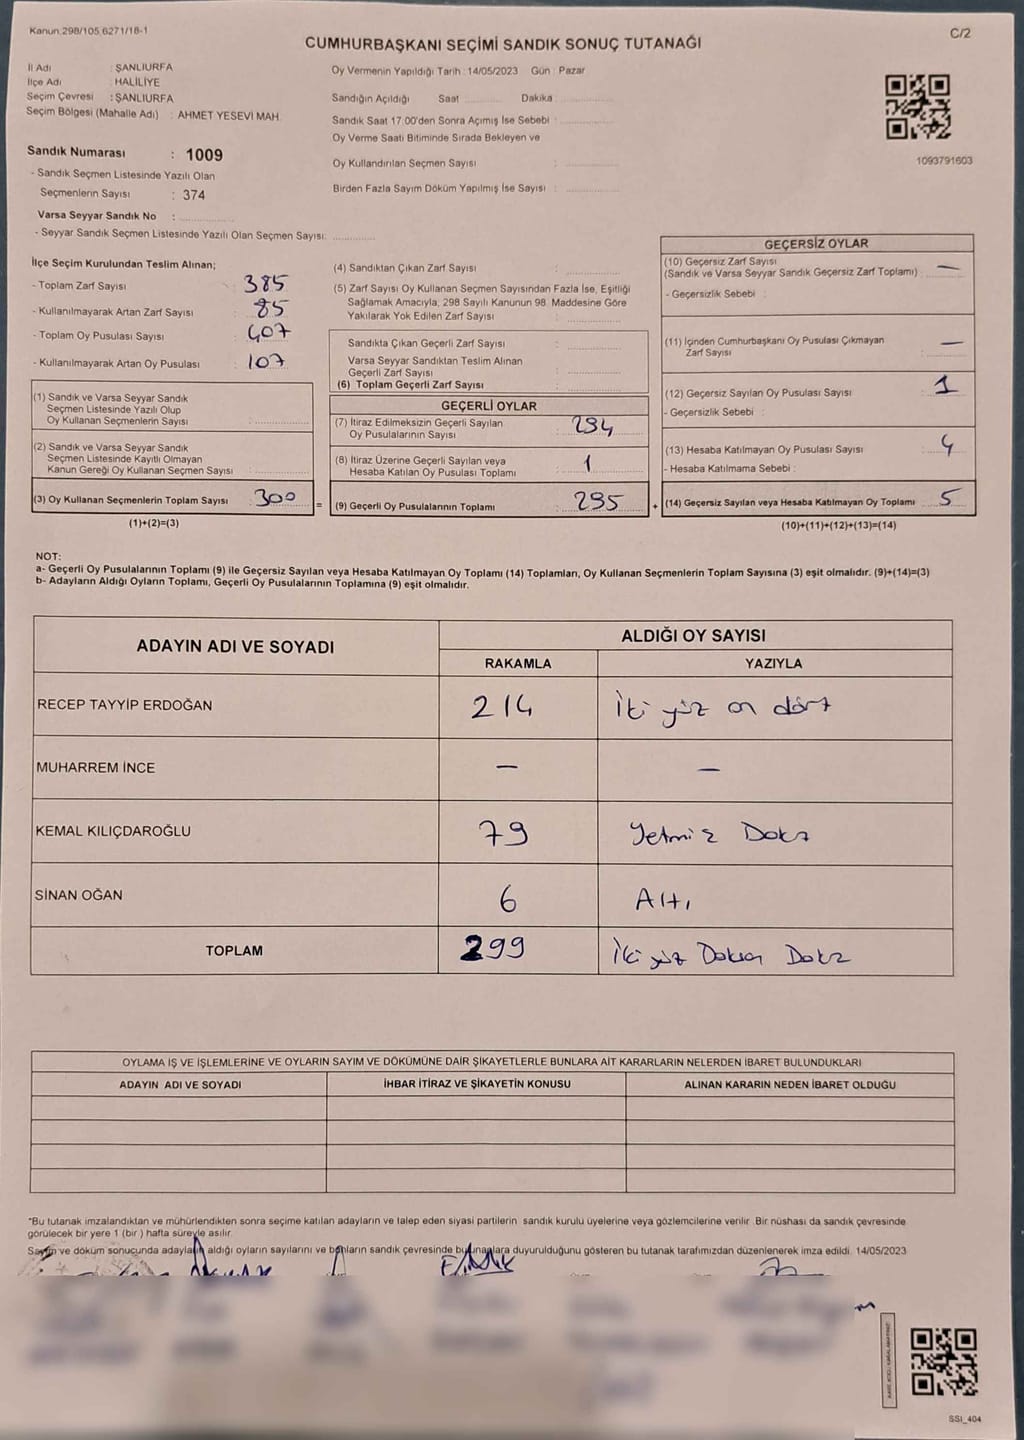 Kanun 298/105 6271/18-1
C/2
CUMHURBAŞKANI SEÇİMİ SANDIK SONUÇ TUTANAĞI
İl Adı : ŞANLIURFA
İlçe Adı : HALİLİYE
Seçim Çevresi : ŞANLIURFA
Seçim Bölgesi (Mahalle Adı) : AHMET YESEVİ MAH.
Sandık Numarası : 1009
- Sandık Seçmen Listesinde Yazılı Olan
Seçmenlerin Sayısı : 374
Varsa Seyyar Sandık No :
- Seyyar Sandık Seçmen Listesinde Yazılı Olan Seçmen Sayısı:
Oy Vermenin Yapıldığı Tarih : 14/05/2023 Gün : Pazar
Sandığın Açıldığı Saat Dakika
Sandık Saat 17:00'den Sonra Açımış İse Sebebi :
Oy Verme Saati Bitiminde Sırada Bekleyen ve
Oy Kullandırılan Seçmen Sayısı :
Birden Fazla Sayım Döküm Yapılmış İse Sayısı :
1093791603
İlçe Seçim Kurulundan Teslim Alınan;
- Toplam Zarf Sayısı : 385
- Kullanılmayarak Artan Zarf Sayısı : 85
- Toplam Oy Pusulası Sayısı : 407
- Kullanılmayarak Artan Oy Pusulası : 107
(1) Sandık ve Varsa Seyyar Sandık
Seçmen Listesinde Yazılı Olup
Oy Kullanan Seçmenlerin Sayısı :
(2) Sandık ve Varsa Seyyar Sandık
Seçmen Listesinde Kayıtlı Olmayan
Kanun Gereği Oy Kullanan Seçmen Sayısı :
(3) Oy Kullanan Seçmenlerin Toplam Sayısı : 300 =
(1)+(2)=(3)
(4) Sandıktan Çıkan Zarf Sayısı :
(5) Zarf Sayısı Oy Kullanan Seçmen Sayısından Fazla İse, Eşitliği
Sağlamak Amacıyla; 298 Sayılı Kanunun 98. Maddesine Göre
Yakılarak Yok Edilen Zarf Sayısı :
Sandıkta Çıkan Geçerli Zarf Sayısı :
Varsa Seyyar Sandıktan Teslim Alınan
Geçerli Zarf Sayısı :
(6) Toplam Geçerli Zarf Sayısı :
GEÇERLİ OYLAR
(7) İtiraz Edilmeksizin Geçerli Sayılan
Oy Pusulalarının Sayısı : 294
(8) İtiraz Üzerine Geçerli Sayılan veya
Hesaba Katılan Oy Pusulası Toplamı : 1
(9) Geçerli Oy Pusulalarının Toplamı : 295 +
GEÇERSİZ OYLAR
(10) Geçersiz Zarf Sayısı
(Sandık ve Varsa Seyyar Sandık Geçersiz Zarf Toplamı) : —
- Geçersizlik Sebebi :
(11) İçinden Cumhurbaşkanı Oy Pusulası Çıkmayan
Zarf Sayısı : —
(12) Geçersiz Sayılan Oy Pusulası Sayısı : 1
- Geçersizlik Sebebi :
(13) Hesaba Katılmayan Oy Pusulası Sayısı : 4
- Hesaba Katılmama Sebebi :
(14) Geçersiz Sayılan veya Hesaba Katılmayan Oy Toplamı : 5
(10)+(11)+(12)+(13)=(14)
NOT:
a- Geçerli Oy Pusulalarının Toplamı (9) ile Geçersiz Sayılan veya Hesaba Katılmayan Oy Toplamı (14) Toplamları, Oy Kullanan Seçmenlerin Toplam Sayısına (3) eşit olmalıdır. (9)+(14)=(3)
b- Adayların Aldığı Oyların Toplamı, Geçerli Oy Pusulalarının Toplamına (9) eşit olmalıdır.
ADAYIN ADI VE SOYADI
ALDIĞI OY SAYISI
RAKAMLA YAZIYLA
RECEP TAYYİP ERDOĞAN 214 İki yüz on dört
MUHARREM İNCE — —
KEMAL KILIÇDAROĞLU 79 Yetmiş Dokz
SİNAN OĞAN 6 Altı
TOPLAM 299 İki yüz Doksan Dokz
OYLAMA İŞ VE İŞLEMLERİNE VE OYLARIN SAYIM VE DÖKÜMÜNE DAİR ŞİKAYETLERLE BUNLARA AİT KARARLARIN NELERDEN İBARET BULUNDUKLARI
ADAYIN ADI VE SOYADI İHBAR İTİRAZ VE ŞİKAYETİN KONUSU ALINAN KARARIN NEDEN İBARET OLDUĞU
"Bu tutanak imzalandıktan ve mühürlendikten sonra seçime katılan adayların ve talep eden siyasi partilerin sandık kurulu üyelerine veya gözlemcilerine verilir. Bir nüshası da sandık çevresinde
görülecek bir yere 1 (bir) hafta süreyle asılır.
Sayım ve döküm sonucunda adayların aldığı oyların sayılarını ve bunların sandık çevresinde bulunanlara duyurulduğunu gösteren bu tutanak tarafımızdan düzenlenerek imza edildi. 14/05/2023
SSI_404